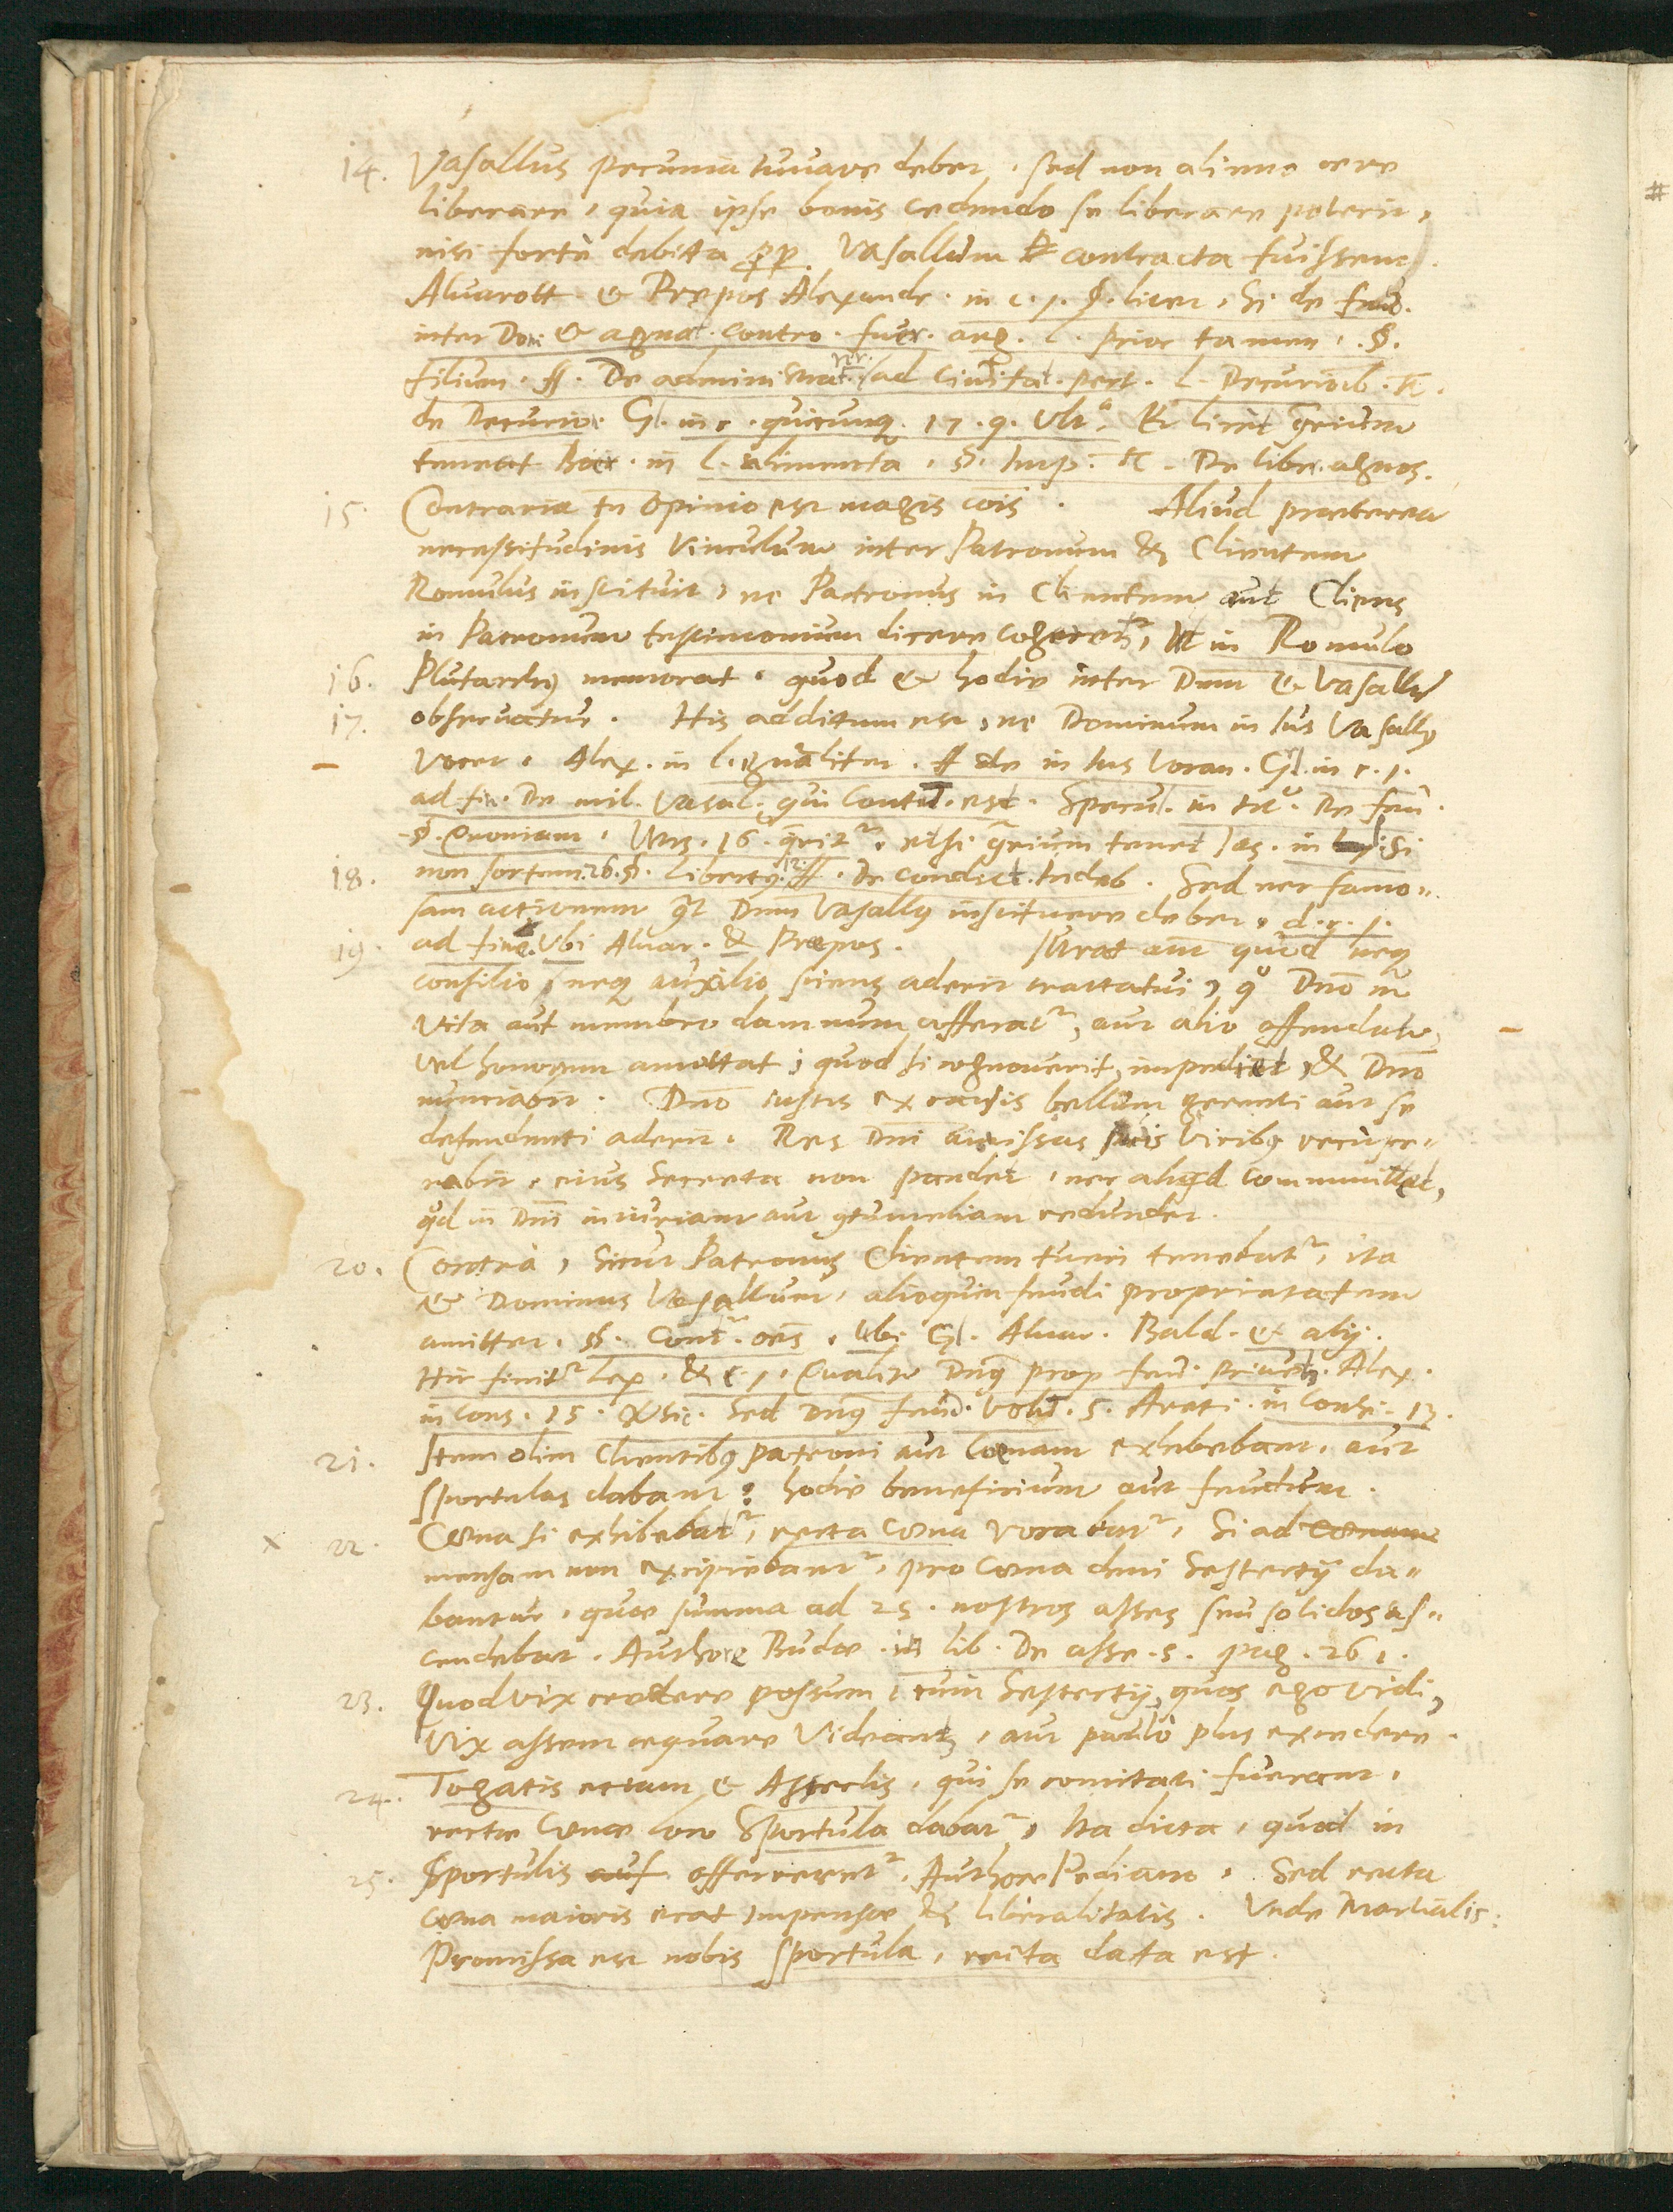 14. Vasallus pecunia iuuare debet, sed non alieno aere
liberare, quia ipse bonis cedendo se liberare poterit,
nisi fortè debita Vasallum contracta fuissent.
Aluarott. & Prepos Alexandr. in c. 1. §. licet, Si de feud.
inter Dom & agnat. contro. fuer. arg. l. prior tamen, §.
filium. ff. De administrat. rer. ad ciuitat. pert. l. Decurionib. C.
de Decurio. Gl. in c. quicunq. 17. q. Vlt. Et licet grium
teneat Boer. in l. alimenta, §. Imp. C. De liber. agnos.
15. Contraria tn opinio est magis cois. Aliud praeterea
necessitudinis Vinculum inter Patronum & Clientem
Romulus instituit, ne Patronus in Clientem aut Cliens
in Patronum testimonium dicere cogeretr, Ut in Romulo
16. Plutarchus memorat, quod & hodie inter Dnm & Vasallum
17. obseruatur. His additum est, ne Dominum in ius Vasallus
vocet. Alex. in l. generaliter. ff de in ius vocan. Gl. in c. 1.
ad fin. De mil. Vasal. qui contu. est. Specul. in tit. De feu.
§. Quoniam, Vers. 16. queritr. etsi grium tenet Ias. in l. Si
18. non sortem. 26. §. libertus. 12. ff. De condict. Indeb. Sed nec famo„
sam actionem Dnm Vasallus instituere debet, d. c. 1.
19. ad fine. Vbi Aluar. & Prepos. Iurat aut quod neq
consilio, neq auxilio sciens aderit tractatui, quo Dno in
Vita aut membro damnum afferatr, aut alio offendatur,
vel honorem amittat, quod si cognouerit, impediet, & Dno
nunciabit. Dno iustis ex causis bellum gerenti aut se
defendenti aderit. Res Dni amissas suis Viribus recupe„
rabit, eius secreta non pandet, nec aliqd committet,
qd in Dni iniuriam aut contumeliam redundet.
20. Contrà, Sicut Patronus Clientem tueri tenebatr, ita
& Dominus Vasallum, alioquin feudi proprietatem
amittet. §. Contr. oes, Ubi Gl. Aluar. Bald. & alij.
Hic finitr lex. & c. 1, Qualiter Dnus prop. feud. priuetr. Alex.
in Cons. 15. Sed Dnus feud. Volu. 5. Areti. in Consi. 13.
21. Item olim Clientibus patroni aut Coenam exhibebant, aut
sportulas dabant: hodie beneficium aut feudum.
x 22. Coena si exhibebatr, recta coena vocabatr, Si ad coenam
mensam non excipiebantr, pro Coena deni Sestertij da„
bantur, quae summa ad 25. nostros asses seu solidos as„
cendebat. Authore Budae. in lib. De asse. 5. pag. 261.
23. Quod vix credere possum, cum Sestertij, quos ego vidi,
Vix assem aequare Videantr, aut paulo plus excedere.
24. Togatis etiam & Asseclis, qui se comitati fuerant,
rectae Coenae loco Sportula dabatr, Ita dicta, quod in
25. Sportulis auf offerreretr, Authore Pediano. Sed recta
coena maioris erat impensae & liberalitatis. Vnde Martialis:
Promissa est nobis sportula, recta data est.